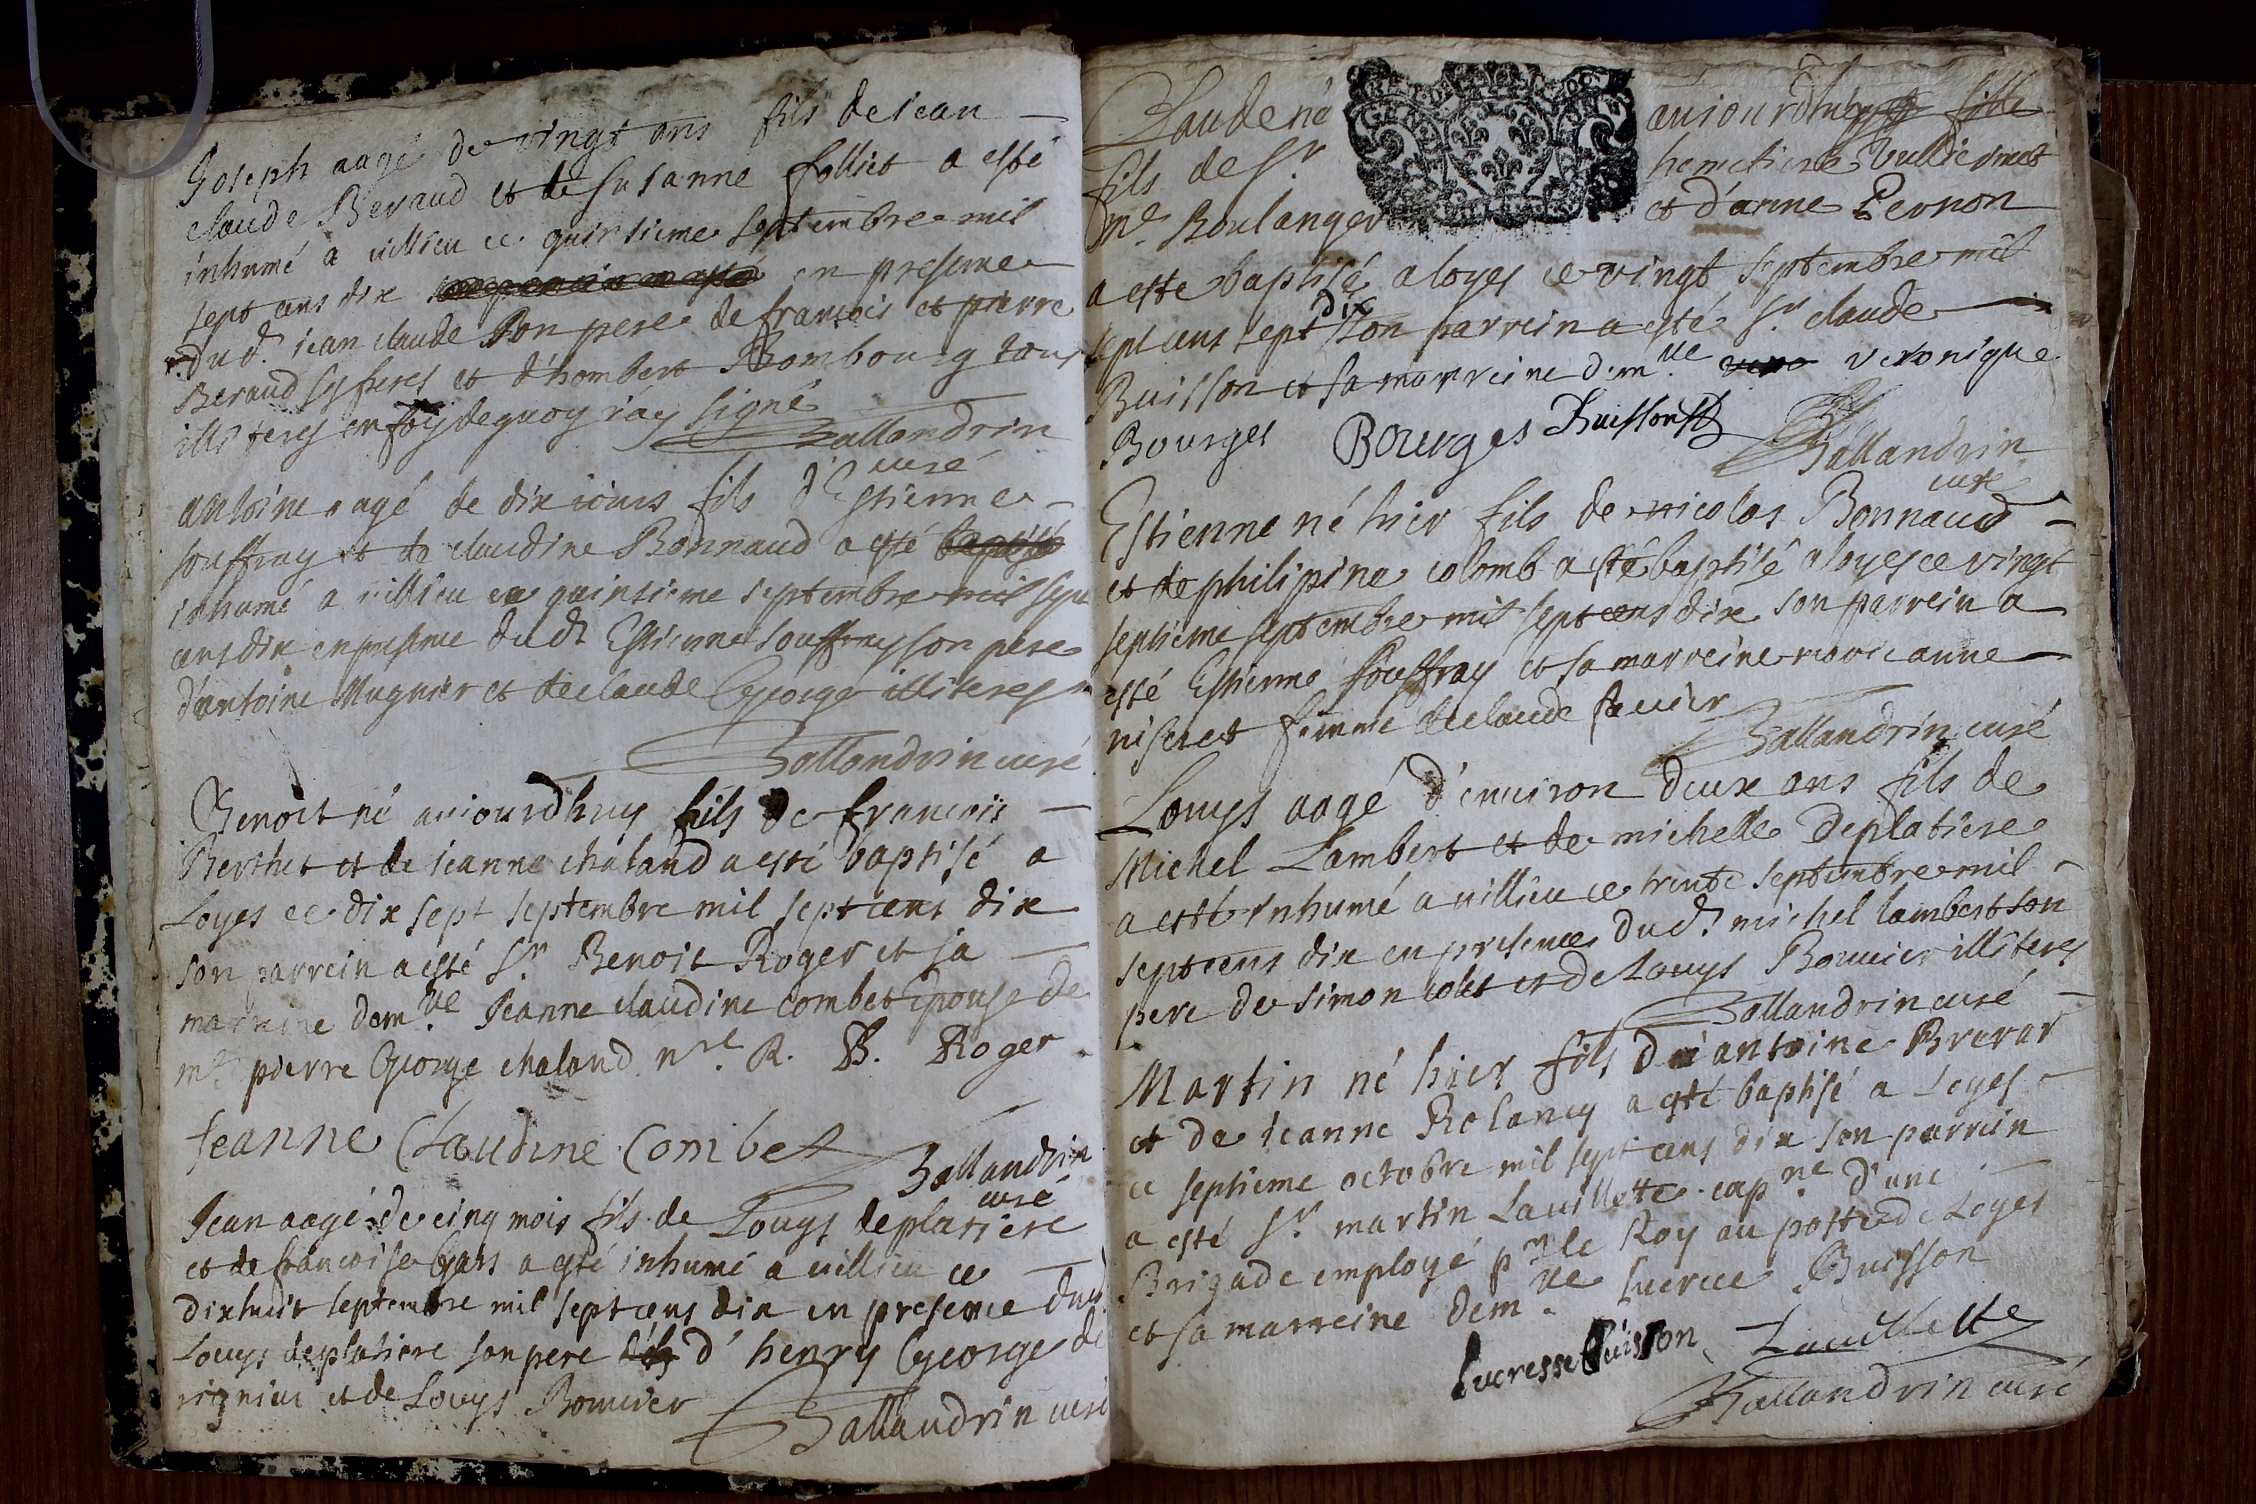 Joseph aagé de vingt ans fils de jean
claude Beraud et de susanne folliet a esté
inhumé a villieu ce quinsieme septembre mil
sept cens dix en presence
dud. jean claude son pere de francois et pierre
Beraud ses freres et d'hombert Bombourg tous
illiteres en foy de quoy j'ay signé
Ballandrin
curé
antoine agé de dix jours fils d'Estienne
souffray et de claudine Bonnaud a esté baptisé
inhumé a villieu ce quinsieme septembre mil sept
cens dix en presence dudt Estienne souffray son pere
d'antoine Mugnier et de claude George illiteres
Ballandrin curé
Benoit né aujourdhuy fils de francois
Berthet et de jeanne chaland a esté baptisé a
Loyes ce dix sept septembre mil sept cens dix
son parrein a esté Sr. Benoit Roger et sa
marreine demlle Jeanne claudine combet epouse de
me. pierre George chaland nre. R. B. Roger
Jeanne Claudine Combet
Ballandrin
curé
Jean aagé de cinq mois fils de Louys deplatiere
et de francoise Gars a esté inhumé a villieu ce
dixhuit septembre mil sept cens dix en presence dud.
Louys deplatiere son pere d'henry George de
rignieu et de Louys Bouvier
Ballandrin curé
Claude né aujourdhuy fille
fils de Sr.
me. Boulanger et d'anne Pernon
a esté baptisé a loyes ce vingt septembre mil
dix
sept cens sept son parrein a esté Sr. claude
Buisson et sa marreine demlle veronique
Bourges Bourges Buisson
Ballandrin
curé
Estienne né hier fils de nicolas Bonnaud
et de philipine colomb a esté baptisé a loyes ce vingt
septieme septembre mil sept cens dix son parrein a
esté Estienne souffray et sa marreine marie anne
niseret femme de claude favier
Ballandrin curé
Louys aagé d'environ deux ans fils de
Michel Lambert et de michelle Deplatiere
a esté inhumé a villieu ce trente septembre mil
sept cens dix en presence dud. michel lambert son
pere de simon colet et de Louys Bouvier illiteres
Ballandrin curé
Martin né hier fils d'antoine Brevar
et de jeanne Rolancy a esté baptisé a Loyes
ce septieme octobre mil sept cens dix son parrein
a esté Sr. martin Lavillette capne d'une
Brigade employé pr le Roy au poste de Loyes
et sa marreine demlle lucrece Buisson
lucresse Buisson Lavillette
Ballandrin curé